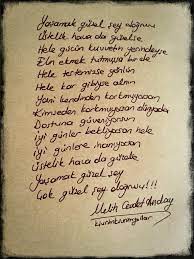 Yaşamak güzel şey doğrusu
Üstelik hava da güzelse
Hele gücün kuvvetin yerindeyse
Elin ekmek tutmuşsa bir de
Hele tertemizse gönlün
Hele kar gibiyse alnın
Yani kendinden korkmuyorsan
Kimseden korkmuyorsan dünyada
Dostuna güveniyorsan
İyi günler bekliyorsan hele
İyi günlere inanıyorsan
Üstelik hava da güzelse
Yaşamak güzel şey
Çok güzel şey doğrusu!!!
Melih Cevdet Anday